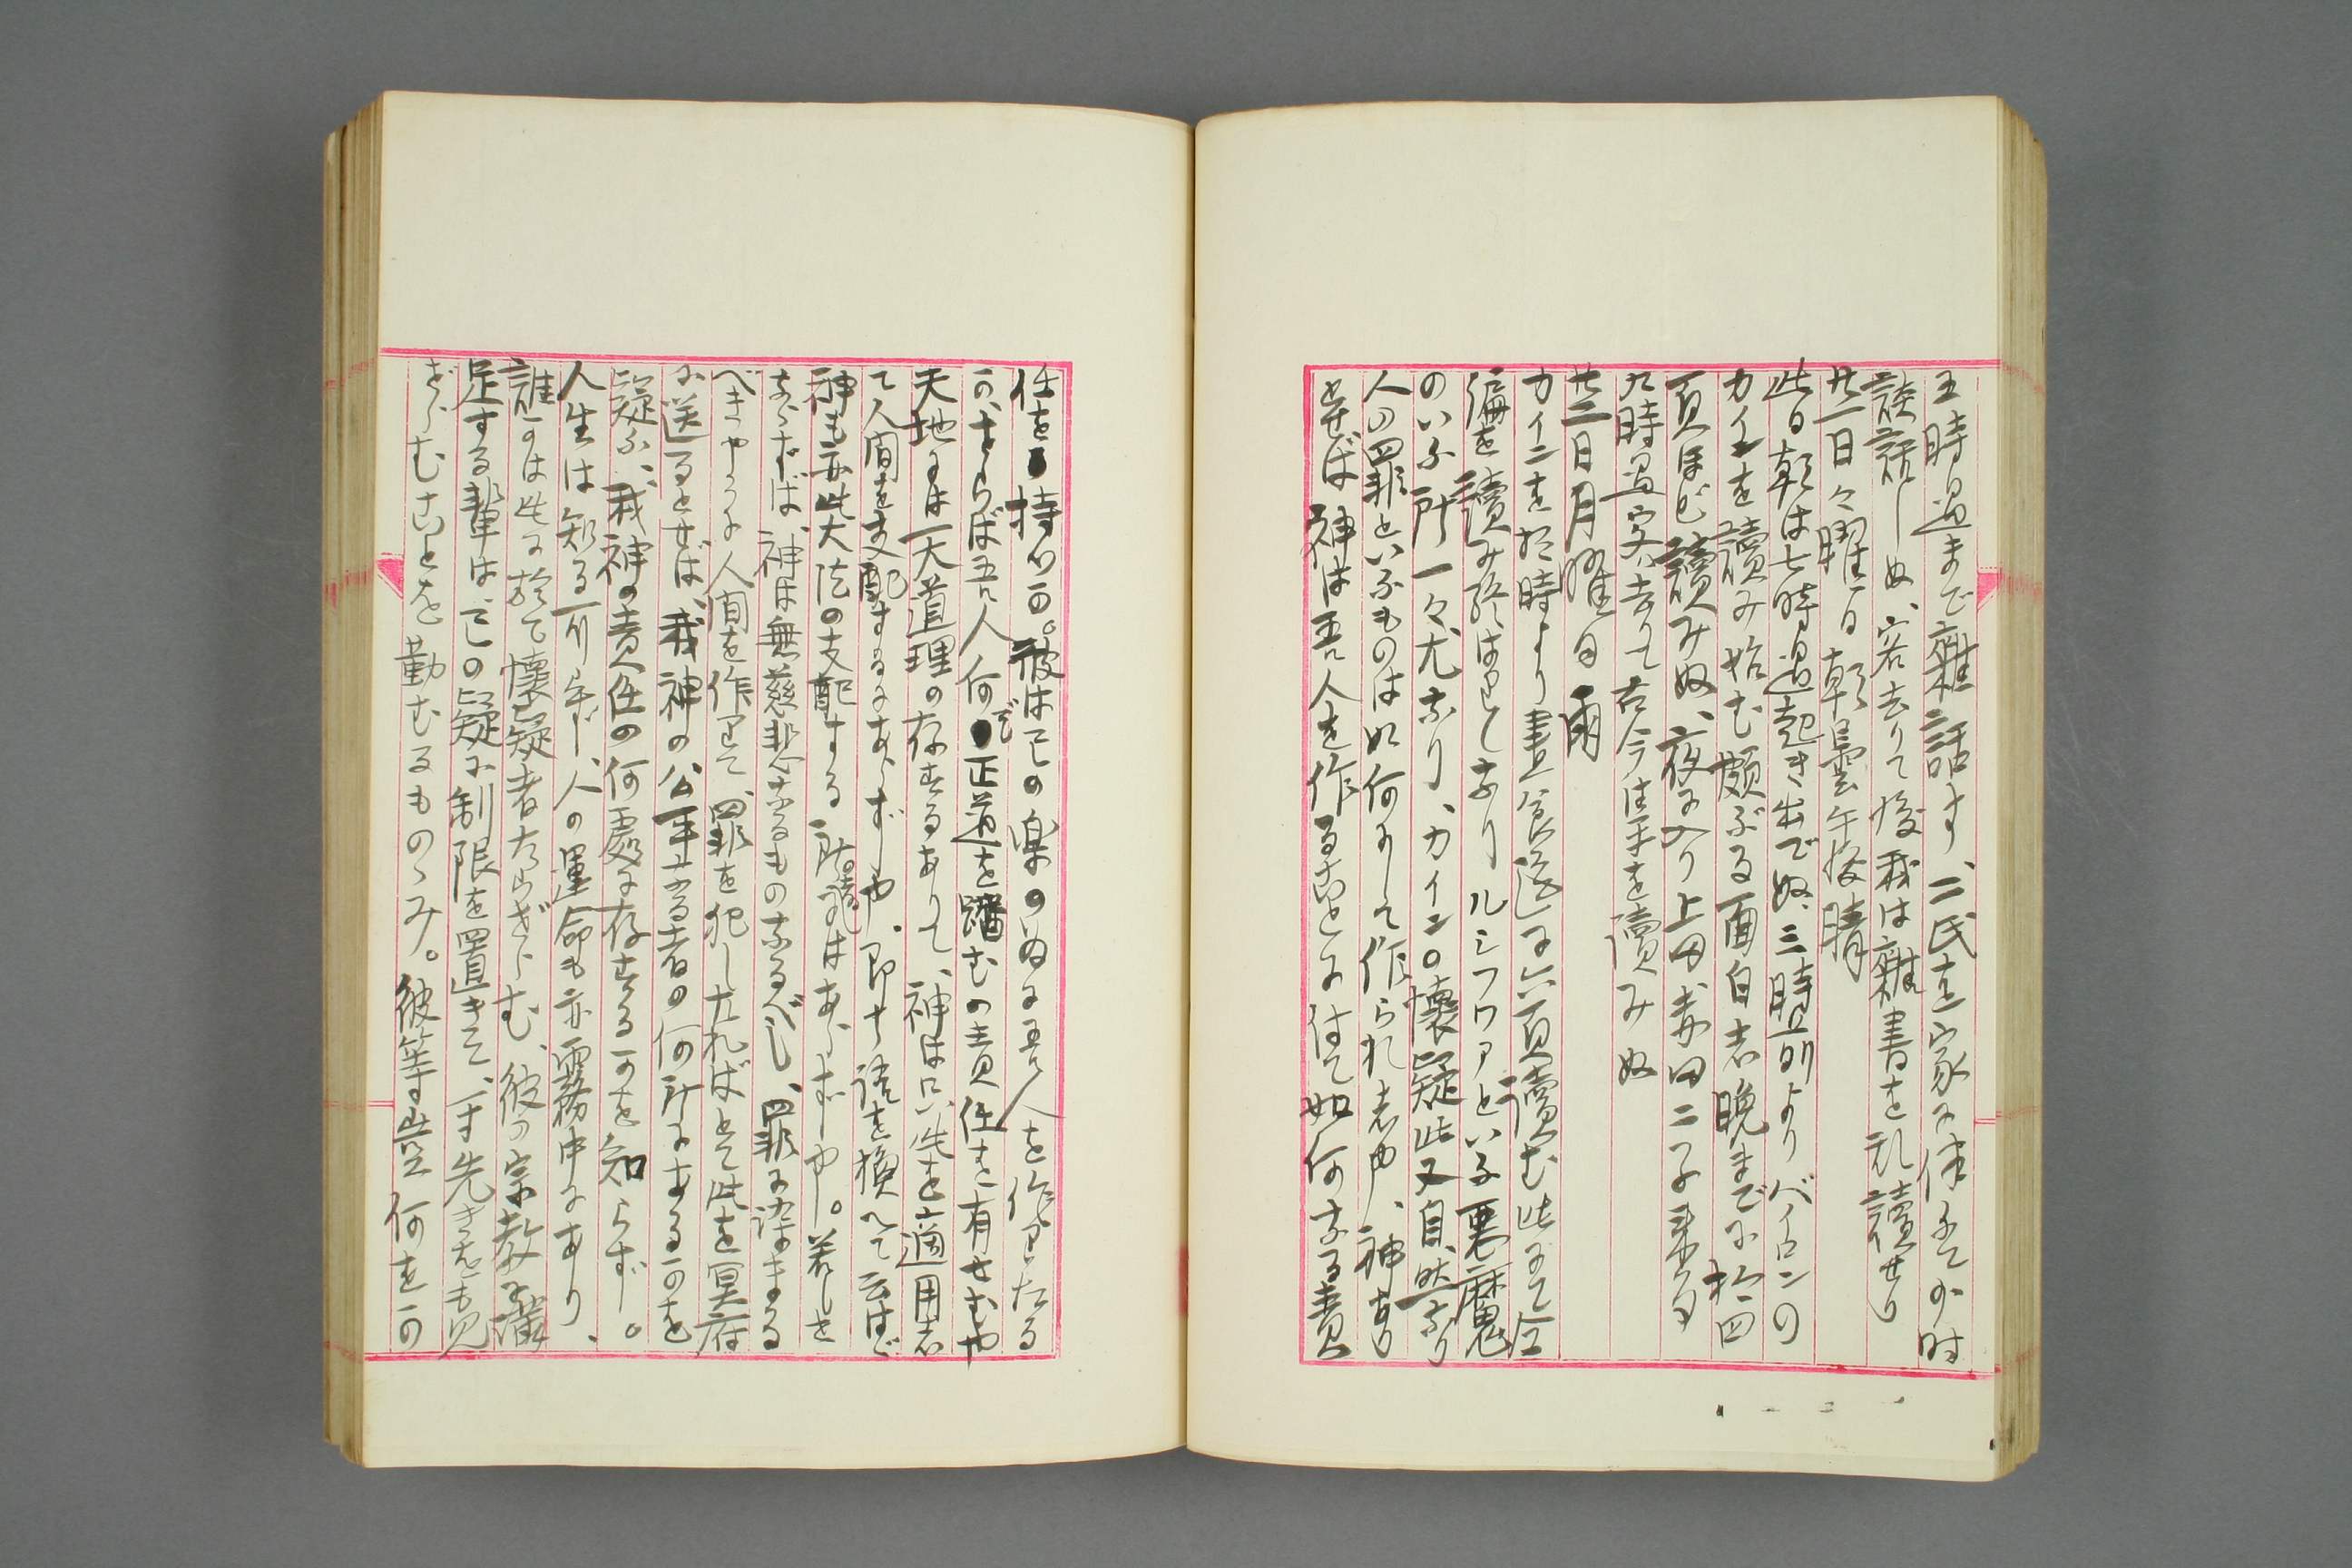 五時過まで雑話す、二氏を家に伴ふて少时
談話しぬ、客去りて後我は雑書を乱讀せり
廿一日々曜日 朝曇午後晴
此日朝は七時過起き出でぬ、三時前よりバイロンの
カインを讀み始む頗ぶる面白志晩までに拾四
頁ほど讀みぬ、夜に入り上田寿四二子来る
九時過客去りて古今集を讀みぬ
廿二日月曜日 雨
カインを拾時より晝食迄に六頁讀む此にて全
編を讀み終はりしなり ルシフワアといふ悪魔
のいふ所一々尤なり、カインの懐疑此又自然なり
人の罪といふものは如何にして作られ志や、神あり
とせば神は吾人を作ることに付て如何なる責
任を持つか。彼は己の楽の為に吾人を作りたる
か、さらば吾人何ぞ正道を踏むの責任を有せむや
天地には一大道理の存するありて、神は只此を適用志
て人间を支配するにあらずや、即ち語を換へて云はゞ
神も亦此大法の支配する所にはあらずや。若しさ
あらずば、神は無慈悲なるものなるべし、罪に染まる
べきやうに人间を作りて、罪を犯したればとて此を冥府
に送るとせば、我神の公平なる者の何所にあるかを
疑ふ、我神の責任の何處に存するかを知らず。
人生は知る可らず、人の運命も亦霧中にあり、
誰かは此に於て懐疑者たらざらむ、彼の宗教に満
足する輩は、己の疑に制限を置きて、一寸先きをも見
ざらむことを勤むるもののみ。彼等豈何をか